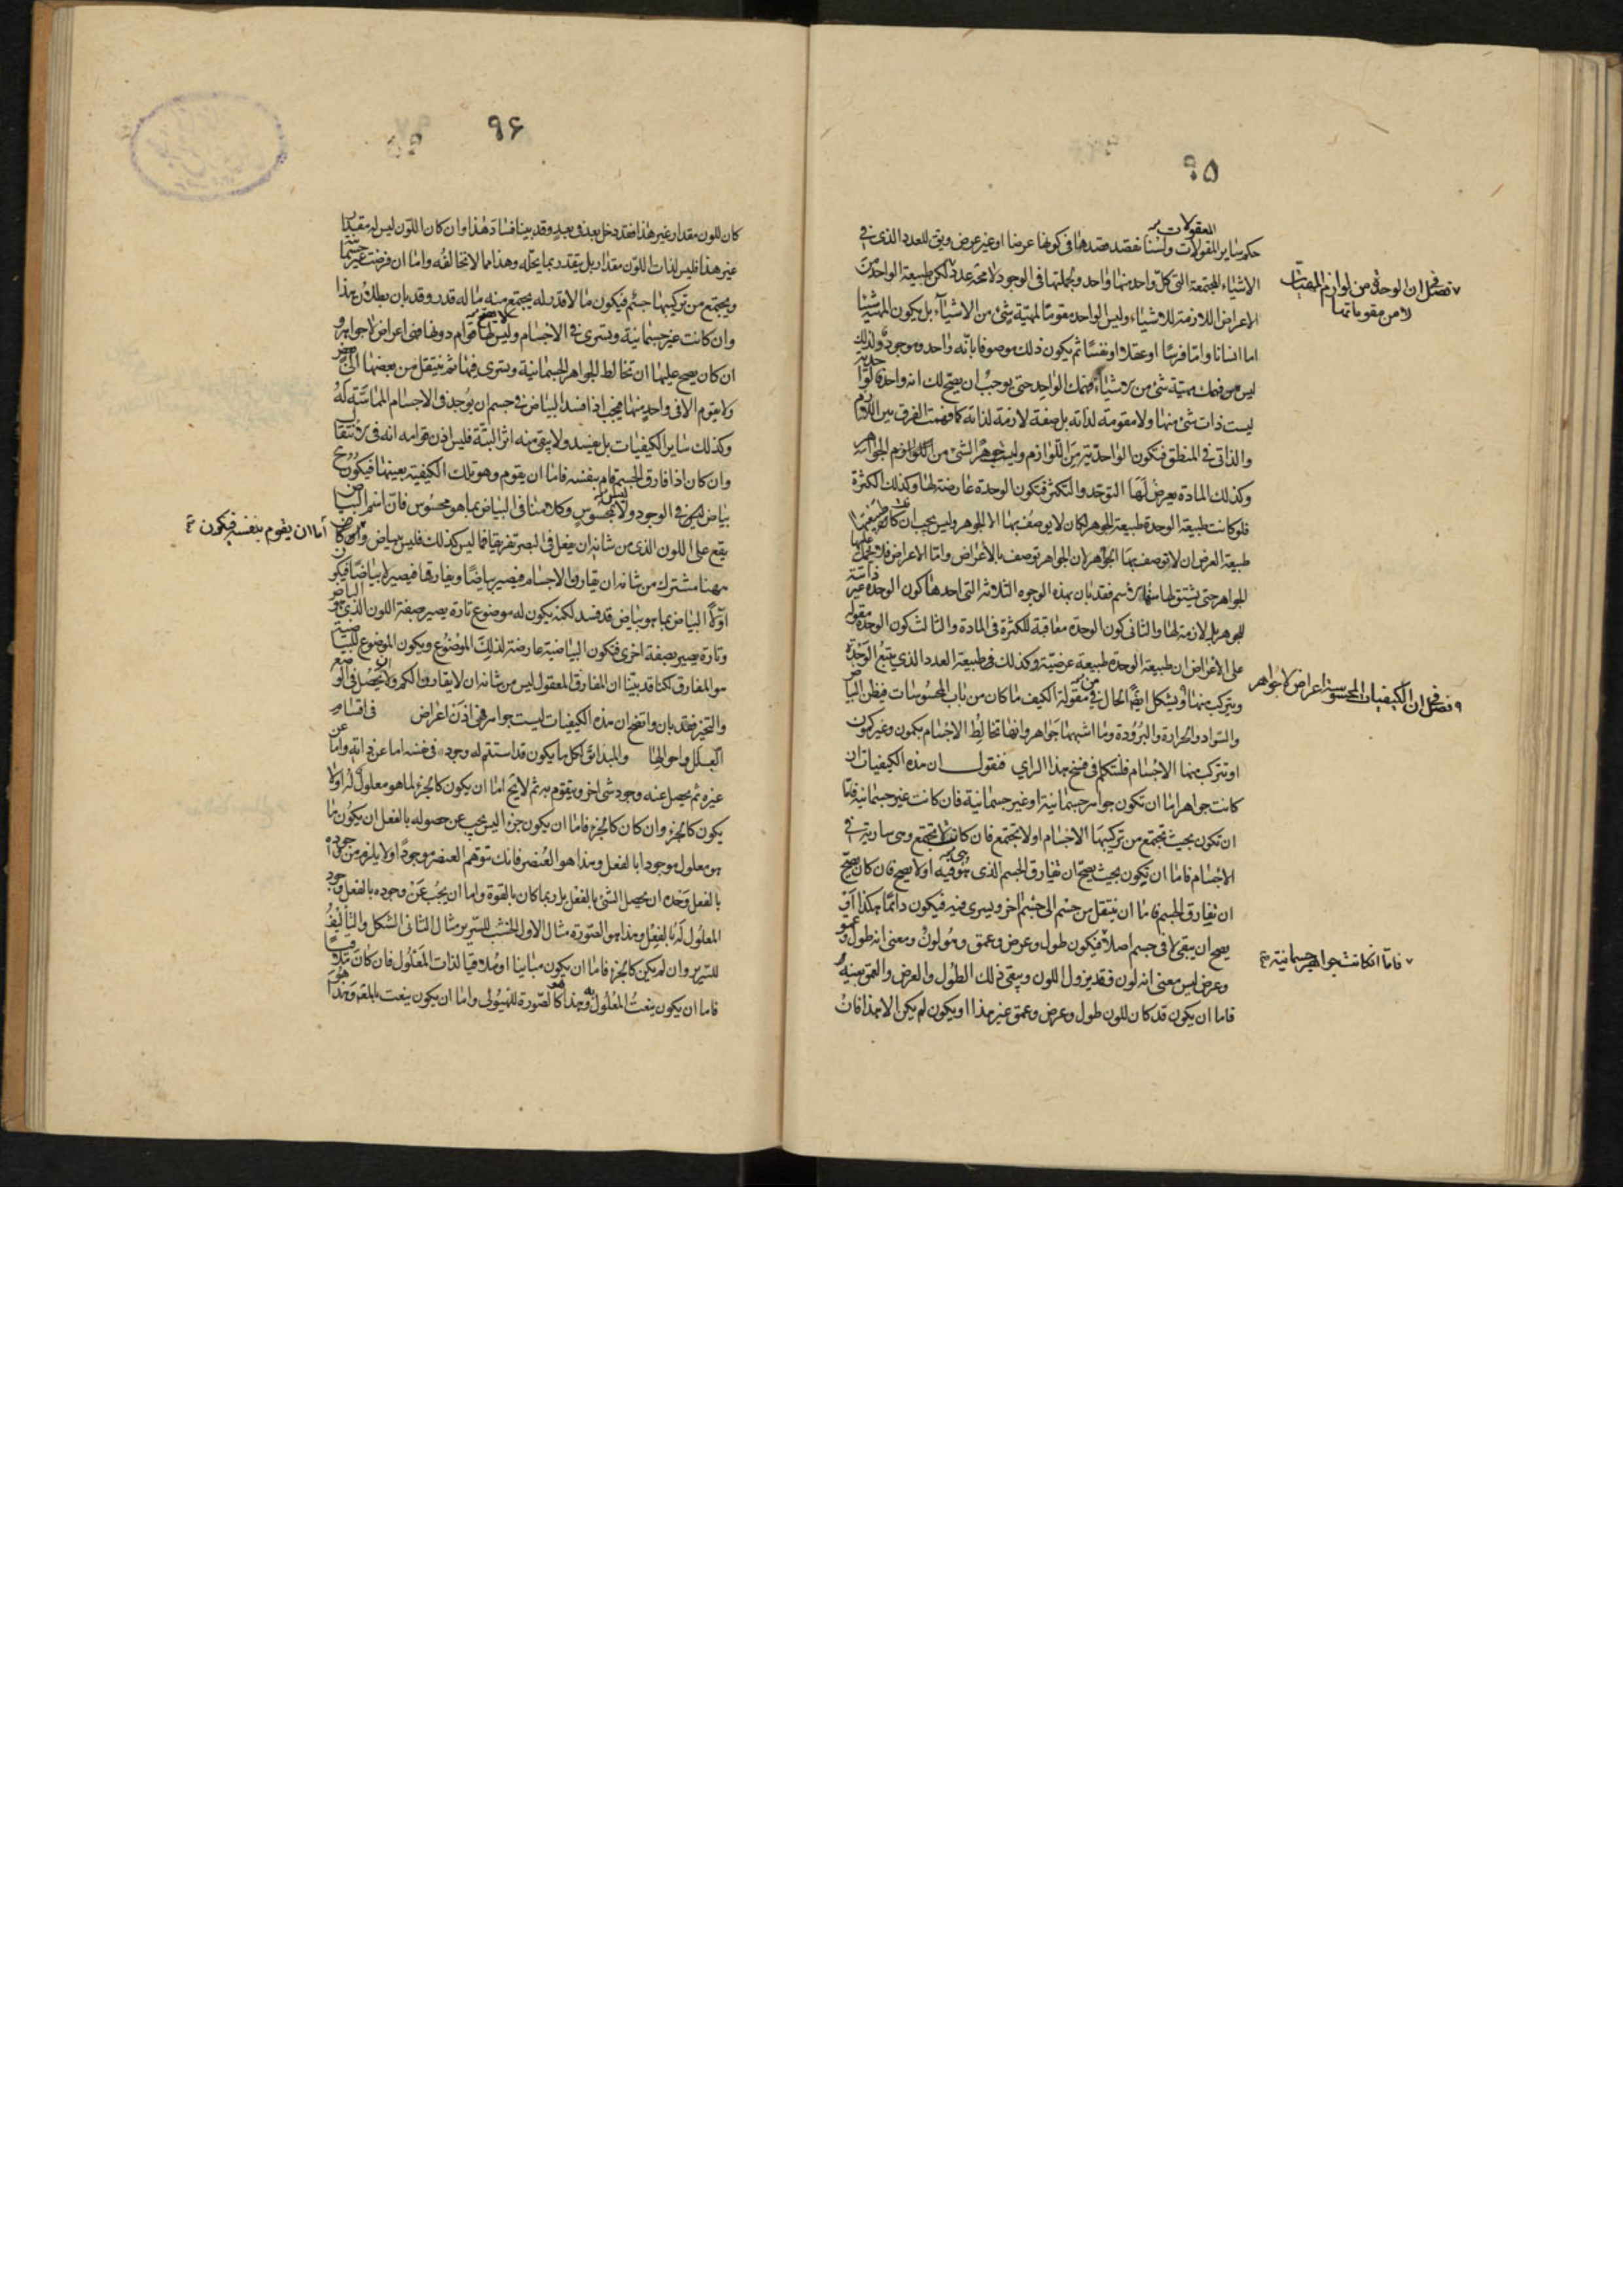 ٩٥
المقولات
حكم ساير المقولات ولسنا نقصد قصدها في كونها عرضا او غير عرض وبقى للعدد الذى في
الاشياء المجتمعة التى كل واحد منها واحد وبجملتها في الوجود لا محة عدة لكن طبيعة الواحد من
٧ فصل في ان الوحدة من لوازم المهيات
لا من مقوماتها
الاعراض اللازمة للاشياء وليس الواحد مقوما لمهية شئ من الاشياء بل يكون المهية شيئا
اما انسانا واما فرسا او عقلا او نفسا ثم يكون ذلك موصوفا بانه واحد وموجود ولذلك
ليس فهمك مهية شئ من الاشياء وفهمك الواحد حتى يوجب ان يصح لك انه واحد فالواحدية
ليست ذات شئ منها ولا مقومة لذاته بل صفة لازمة لذاته كما فهمت الفرق بين اللازم
والذاتى في المنطق فتكون الواحدية من اللوازم وليست جوهر الشئ من اللوازم الجواهر
وكذلك المادة يعرض لها التوحد والتكثر فتكون الوحدة عارضة لها وكذلك الكثرة
فلو كانت طبيعة الوحدة طبيعة الجوهر لكان لا يوصف بها الا الجوهر وليس يجب ان كانت طبيعتها
طبيعة العرض ان لا توصف بها الجواهر لان الجواهر توصف بالاعراض واما الاعراض فلا تحمل عليها
الجواهر حتى يشتق لها منها الاسم فقد بان بهذه الوجوه الثلاثة التى احدها كون الوحدة غير ذاتية
للجوهر بل لازمة لها والثانى كون الوحدة معاقبة للكثرة في المادة والثالث كون الوحدة مقولة
على الاعراض ان طبيعة الوحدة طبيعة عرضية وكذلك في طبيعة العدد الذى يتبع الوحدة
ويتركب منها ويشكل ايضا الحال في مقولة الكيف ما كان من باب المحسوسات فيظن البياض
٩ فصل في ان الكيفيات المحسوسة اعراض لا جواهر
والسواد والحرارة والبرودة وما اشبهها جواهر وانها تخالط الاجسام بكمون وغير كمون
او تتركب منها الاجسام فلنتكلم في فسخ هذا الراي فنقول ان هذه الكيفيات ان
كانت جواهر اما ان تكون جواهر جسمانية او غير جسمانية فان كانت غير جسمانية فاما
ان تكون بحيث تجتمع من تركيبها الاجسام او لا تجتمع فان كانت لا تجتمع وهى سارية في
الاجسام فاما ان تكون بحيث يصح ان تفارق الجسم الذى هى فيه او لا يصح فان كان يصح
ان تفارق الجسم فاما ان ينتقل من جسم الى جسم اخر ويسرى فيه فيكون دائما هكذا او
يصح ان يبقى لا في جسم اصلا فيكون طول وعرض وعمق وهو لون ومعنى انه طول وعمق
٧ فاما ان كانت جواهر جسمانية
وعرض ليس معنى انه لون فقد يزول اللون ويبقى ذلك الطول والعرض والعمق بعينه
فاما ان يكون قد كان للون طول وعرض وعمق غير هذا او يكون لم يكن الا هذا فان
٩٦
كان للون مقدار غير هذا فقد دخل بعد في بعد وقد بينا فساد هذا وان كان اللون ليس له مقدار
غير هذا فليس لذات اللون مقدار بل يتقدر بما يحله وهذا مما لا نخالفه واما ان فرضت غير جسمانية
ويجتمع من تركيبها جسم فيكون ما لا قدر له يجتمع منه ما له قدر وقد بان بطلان هذا
وان كانت غير جسمانية وتسرى في الاجسام وليس لها قوام دونها فهى اعراض لا جواهر و
ان كان يصح عليها ان تخالط الجواهر الجسمانية وتسرى فيها ثم تنتقل من بعضها الى بعض
ولا يقوم الا في واحد منها فيجب اذا فسد البياض في جسم ان يوجد في الاجسام المماسة له
وكذلك ساير الكيفيات بل يفسد ولا يبقى منه اثر البتة فليس اذن قوامه انه في الانتقال
وان كان اذا فارق الجسم قام بنفسه فاما ان يقوم وهو تلك الكيفية بعينها فيكون ح
بياض في الوجود ولا بمحسوس وكلامنا في البياض بما هو محسوس فان اسم البياض
يقع على اللون الذى من شانه ان يفعل في البصر تفريقا فما ليس كذلك فليس ببياض
اما ان يقوم بنفسه فيكون
ههنا مشترك من شانه ان يقارن الاجسام فيصير بياضا ويفارقها فيصير لا بياضا فيكون
اولا البياض بما هو بياض قد فسد لكنه يكون له موضوع تارة يصير صفة اللون الذى هو البياض
وتارة يصير بصفة اخرى فتكون البياضية عارضة لذلك الموضوع ويكون الموضوع للبياضية
هو المفارق لكنا قد بينا ان المفارق المعقول ليس من شانه ان لا يقارن الكم ولا يحصل في الوضع
والتحيز فقد بان واتضح ان هذه الكيفيات ليست جواهر فهى اذن اعراض في اقسام
العلل واحوالها والمبدا يق لكل ما يكون قد استتم له وجود في نفسه اما عن ذاته واما عن
غيره ثم يحصل عنه وجود شئ اخر ويتقوم به ثم لا يخ اما ان يكون كالجزء لما هو معلول له او لا
يكون كالجزء وان كان كالجزء فاما ان يكون جزءا ليس يجب عن حصوله بالفعل ان يكون ما
هو معلول موجودا بالفعل وهذا هو العنصر فانك تتوهم العنصر موجودا ولا يلزم من وجوده
بالفعل وحده ان يحصل الشئ بالفعل بل ربما كان بالقوة واما ان يجب عن وجوده بالفعل وجود
المعلول له بالفعل وهذا هو الصورة مثال الاول الخشب للسرير مثال الثانى الشكل والتاليف
للسرير وان لم يكن كالجزء فاما ان يكون مباينا او ملاقيا لذات المعلول فان كان ملاقيا
فاما ان يكون ينعت المعلول به وهذا هو كالصورة للهيولى واما ان يكون ينعت بالمعلول وهذا